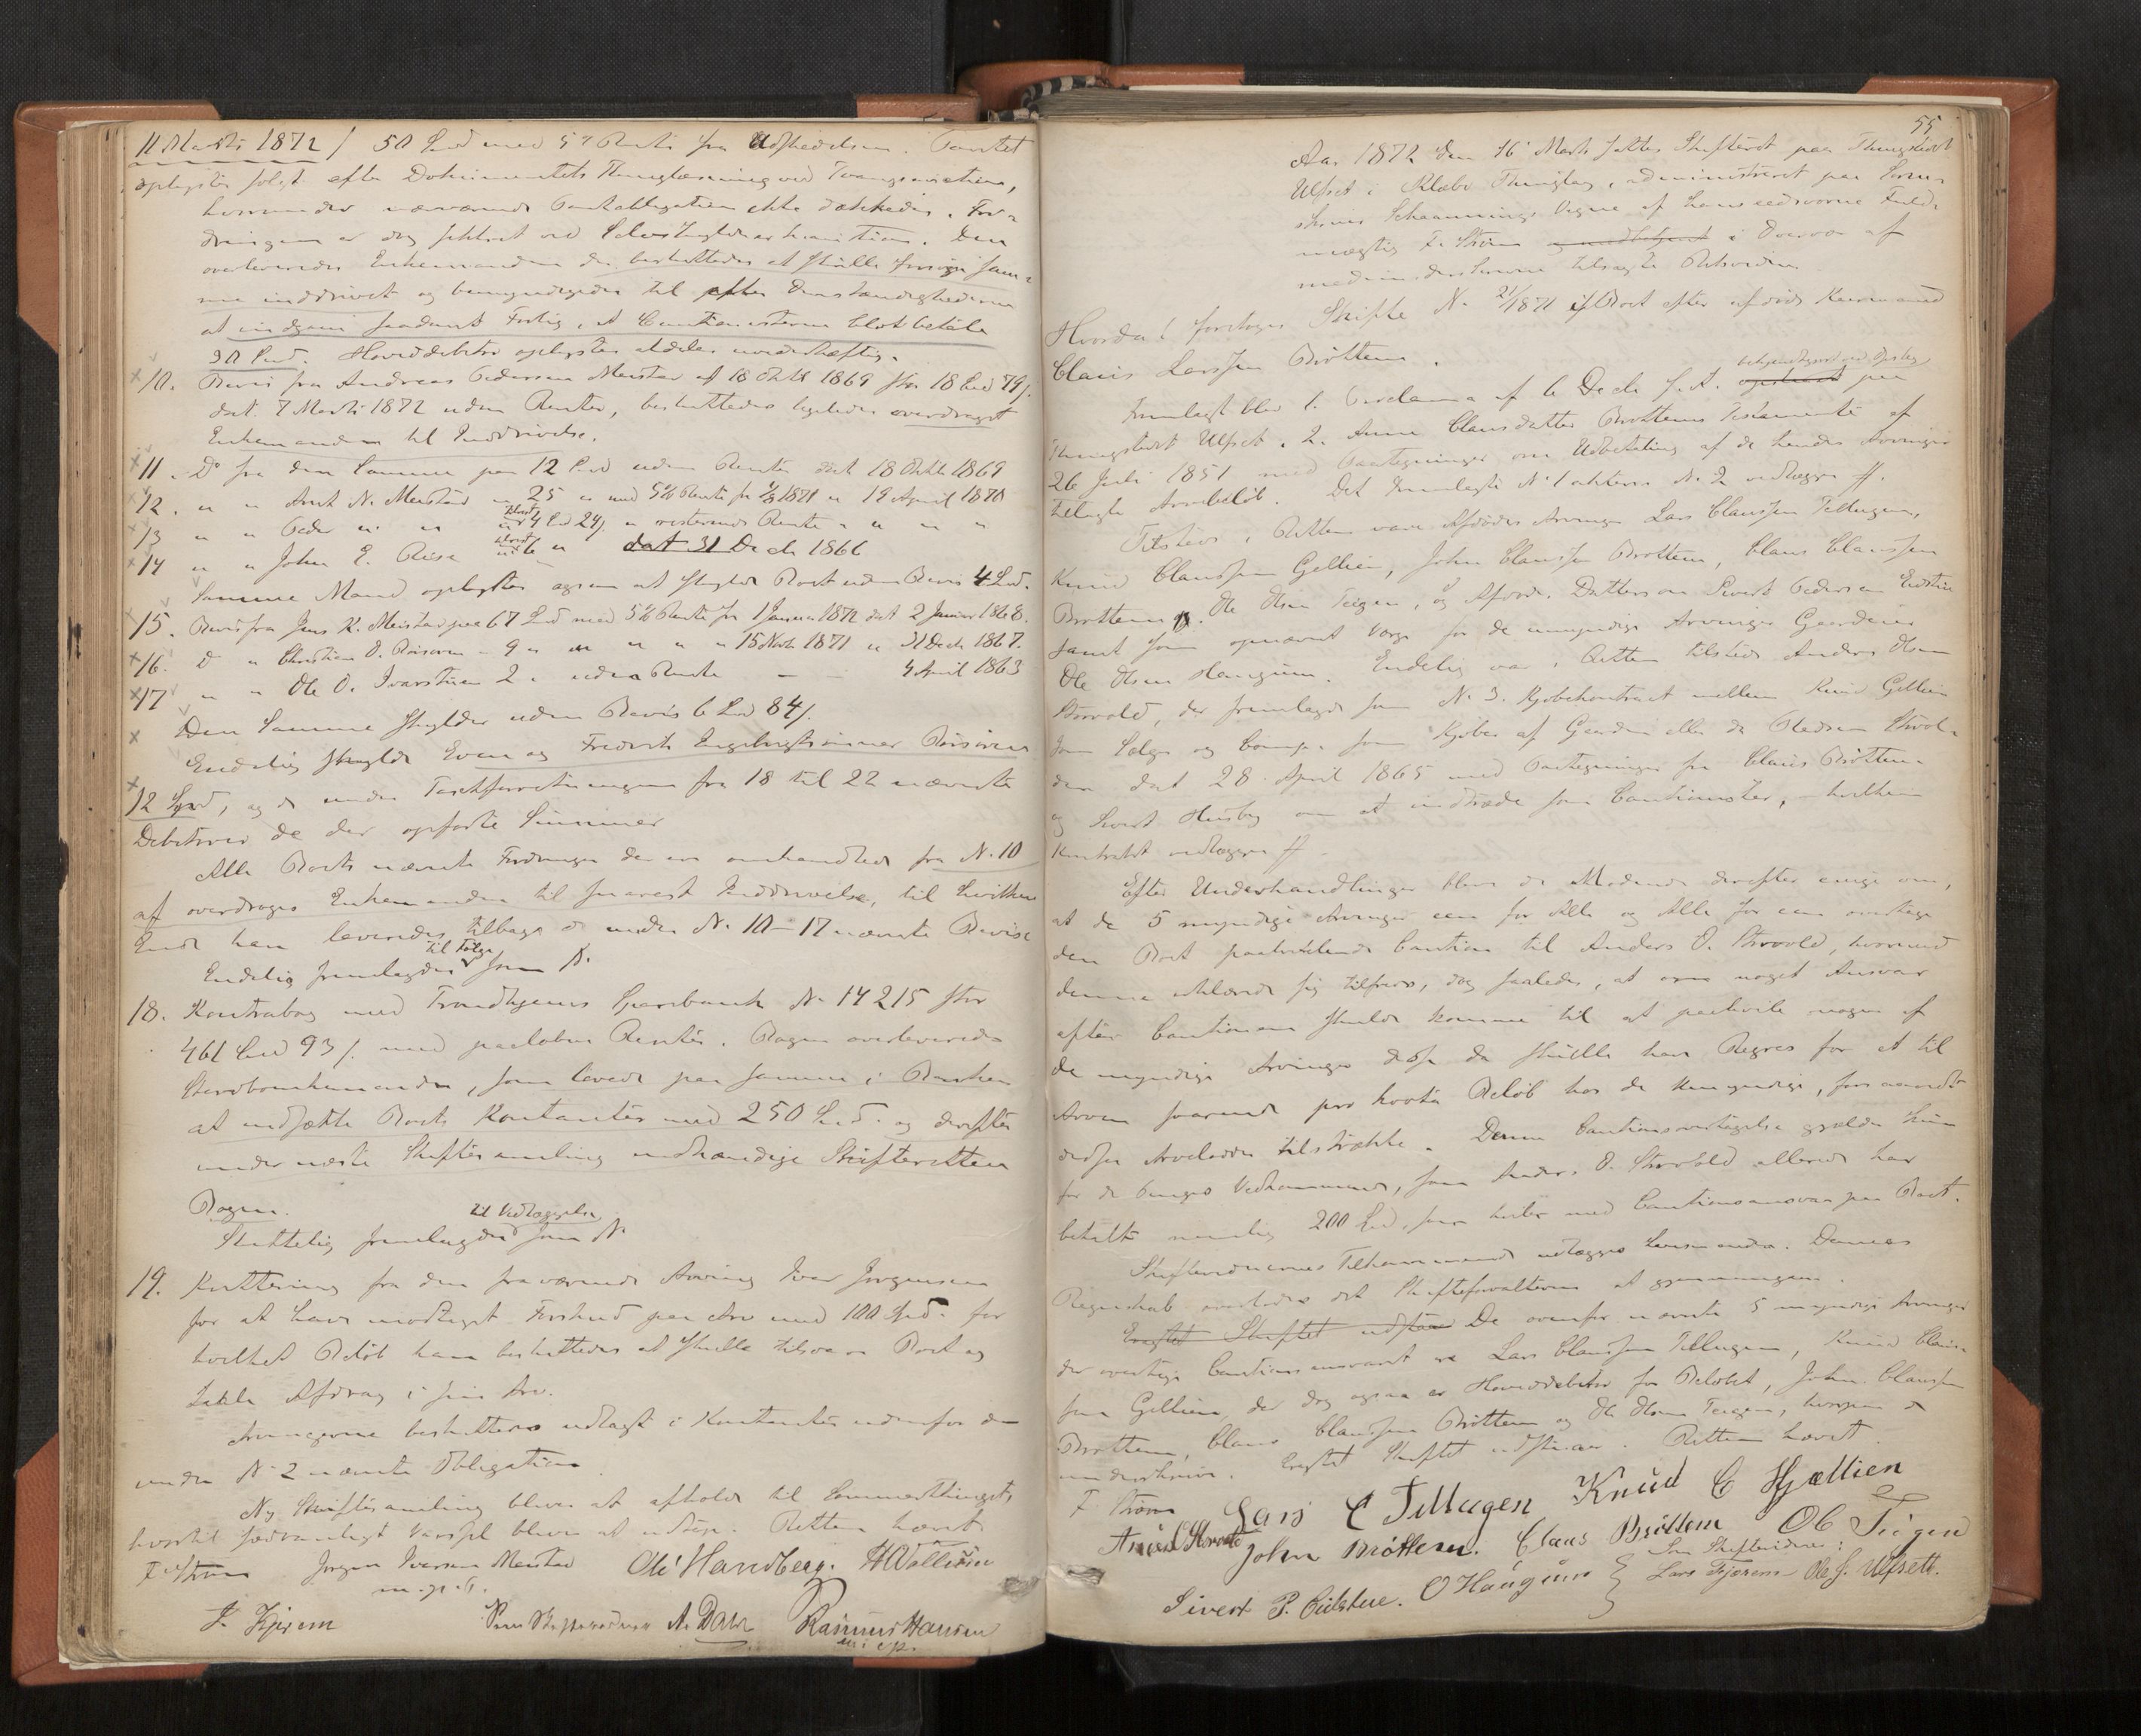 11 Marts 1872/ 50 Spd med 5% Rente fra Udstedelsen. Pantet
oplystes solgt efter Dokumentets Thinglæsning ved Tvangsauction,
hvorunder nærværende Pantobligation ikke dækkedes. For-
dringen er dog sikkret ved Selvskyldnerkaution. Den
overleveredes Enkemanden der besluttedes at skulle forsøge sam-
me inddrivet og bemyndigedes til efter Omstændighederne
at indgaa saadant Forlig, at Cautionisterne blot betale
30 Spd. Hoveddebitor oplystes aldeles uvederhæftig.
10. Bevis fra Andreas Pedersen Meistad af 18 Oktb 1869 stor 18 Spd 79 s.
dat. 7 Marts 1872 uden Renter, besluttedes ligeledes overdraget
Enkemanden til Inddrivelse.
11. Do fra den Samme paa 12 Spd uden Rente dat 18 Oktb 1869
12. " " Arnt N. Meistad " 25 " med 5% Rente fra 1871 " 19 April 1870
13 " " Peder " " 4 Spd 24 s. " resterende Rente " " "
14 " " John E. Risa 6 " dat 31 Decb 1866
Samme Mand oplystes ogsaa at skylde Boet uden Bevis 4 Spd.
15. Bevis fra Jens K. Meistad paa 67 Spd med 5% Rente fra 1 Januar 1872 dat 2 Januar 1868.
16. D " Christian O. Risaren - 9 " " " " " 15 Novb 1871 " 31 Decb 1867.
17 " " Ole O. Ivarstuen 2 " uden Rente - - 4 April 1863
Den Samme skylder uden Bevis 6 Spd 84 s.
Endelig skylde Even og Fredrik Engebrigtsønner Risaren
12 Spd, og de under Taxtforretningen fra 18 til 22 nævnte
Debitorer de der opførte Summer
Alle Boets nævnte Fordringer der ere omhandlede fra N. 10
af overdroges Enkemanden til snarest Inddrivelse, til hvilken
Ende han leveredes tilbage de under N. 10-17 nævnte Bevise
til Følge
Endelig fremlagdes som N.
18. Kontrabog med Trondhjems Sparebank N. 14215 stor
461 Spd 93 s. med paaløbne Renter. Bogen overleveredes
Stervboenkemanden, som lovede paa samme i Banken
at indsætte Boets Kontanter med 250 Spd. og derefter
under næste Skiftesamling indhændige Skifteretten
Bogen.
til Vedlæggelse
Sluttelig fremlagdes som N.
19. Kvittering fra den fraværende Arving Iver Jørgensen
for at have modtaget Forskud paa Arv med 100 Spd. for
hvilket Beløb han besluttedes at skulle tilsvare Boet og
taale Afdrag i sin Arv.
Arvingerne besluttes udlagt i Kontanter udenfor den
under N. 2 nævnte Obligation
Ny Skiftesamling bliver at afholde til Sommerthinget,
hvortil sædvanligt Varsel bliver at udstede. Retten hævet
F Strøm Jørgen Iversen Meistad Ole Handberg. H Vollesen
m. p. P.
J. Kjerem Som Skiftevidner A. Dahl Rasmus Hansen
m. p.
55
Aar 1872 den 16 Marts sattes Skifteret paa Thingstedet
Ulfset i Klæbo Thinglag, administreret paa Soren-
skriver Schaannings Vegne af hans eedsvorne Fuld-
mægtig F. Strøm og underbetjent i Overvær af
medunderskrevne tilsagte Retsvidner
Hvorda! foretoges Skifte N. 21/1871 i Boet efter afdøde Kaarmand
Claus Larssen Brøttem.
bekjendtgjort ved Opslag
Fremlagt blev 1. Proclama af 6 Decb f. A. oplæst paa
Thingstedet Ulfset. 2. Anne Clausdatter Brøttems Testamente af
26 Juli 1851 med Paategninger om Udbetaling af de hendes Arvinger
tillagte Arvebeløb. Det fremlagte N. 1 akteres N. 2 vedlægges ff.
Tilstede i Retten vare Afdødes Arvinger Lars Claussen Tellugen,
Knud Claussen Gellien, John Claussen Brøttem, Claus Claussen
Brøttem, Ole Olsen Teigen, og Afdøde Dattersøn Sivert Pedersen Eidstue
samt som opnævnt Værge for de umyndige Arvinger Gaardmand
Ole Olsen Haugum. Endelig var i Retten tilstede Anders Olsen
Storvold, der fremlagde som N. 3. Kjøbekontract mellem Knud Gellien
som Sælger og Comp. som Kjøber af Gaarden eller de Pladsen Storvol-
den dat 28 April 1865 med Paategninger fra Claus Brøttem
og Sivert Husby om at indtræde som Cautionister, hvilken
Kontrakt vedlægges ff.
Efter Underhandlinger bleve de Mødende derefter enige om,
at de 5 myndige Arvinger een for Alle og Alle for een overtage
den Boet paahvilende Caution til Anders O. Storvold, hvormed
denne erklærede sig tilfreds, dog saaledes, at om noget Ansvar
efter Cautionen skulde komme til at paahvile nogen af
de myndige Arvinger disse da skulle have Regres for et til
Arven svarende pro kvota Beløb hos de Umyndige, forsaavidt
disses Arvelodder tilstrække. Denne Cautionsovertagelse gjælder kun
for de Penges Vedkommende, som Anders O. Storvold allerede har
betalt nemlig 200 Spd, som hviler med Cautionsansvar paa Boet.
Skiftevidnernes Tilkommende udlægges Lensmanden. Dennes
Regnskab overlodes det Skifteforvalteren at gjennemgaa.
Eragtet Skiftet udstaar De ovenfor nævnte 5 myndige Arvinger
der overtage Cautionsansvaret ere Lars Claussen Tellugen, Knud Claus-
sen Gellien, der dog ogsaa er Hoveddebitor for Beløbet, John Claussen
Brøttem, Claus Claussen Brøttem og Ole Olsen Teigen, hvorpaa de
underskrive. Eragtet Skiftet udstaar. Retten hævet.
F. Strøm Lars C Tellugen Knud C Hjællien
Anders Storvold John Brøttem. Claas Brøttem Ole Teigen
Sivert P. Eidstue. O Haugum } Som Skiftevidner:
Lars Fjærem Ole J. Ulfsett.